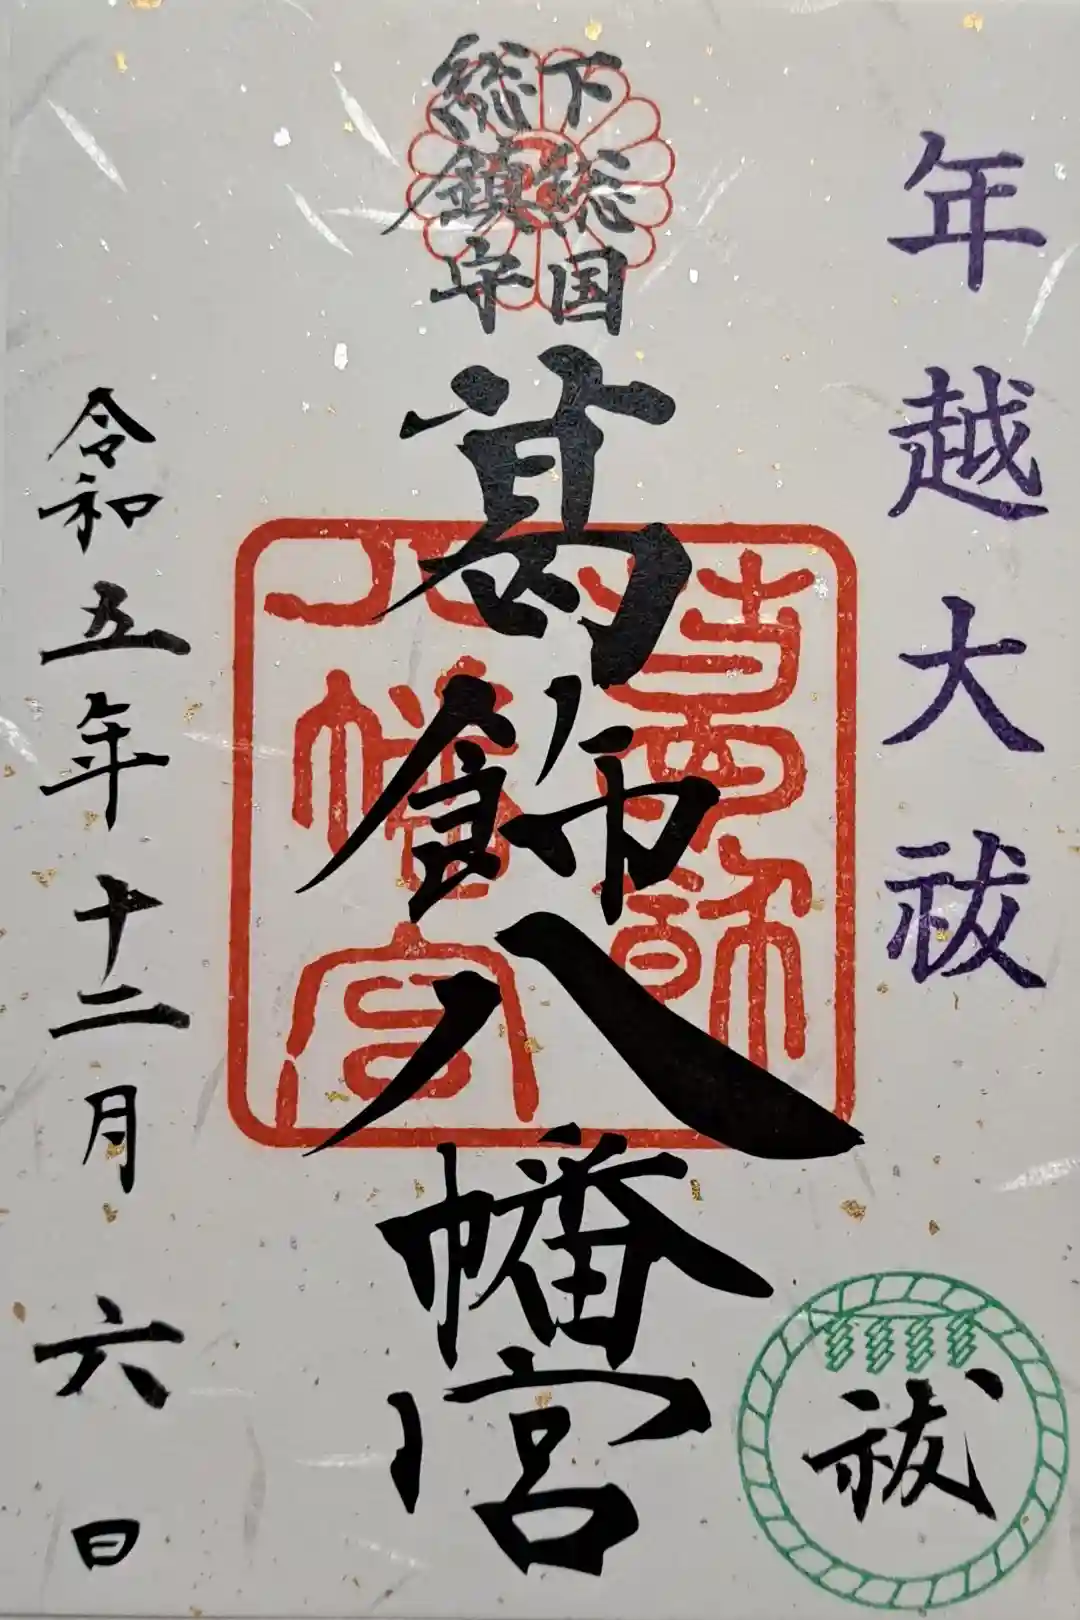 年越大祓
下総国
総鎮守
葛飾八幡宮
八幡宮
令和五年十二月六日
祓